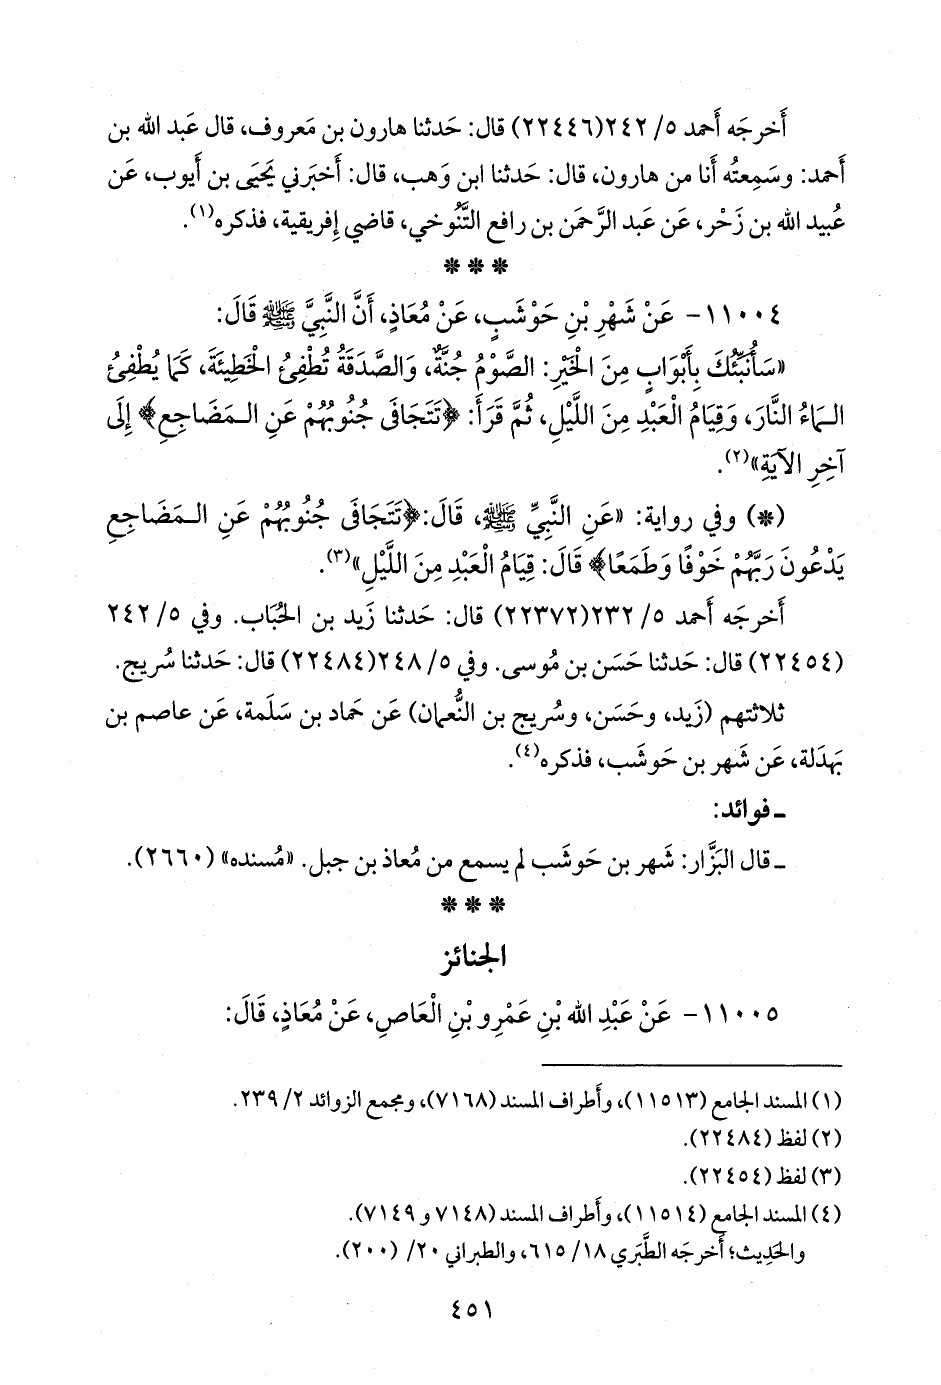 أَخرجَه أَحمد ٥/ ٢٤٢(٢٢٤٤٦) قال: حَدثنا هارون بن مَعروف، قال عَبد الله بن
أَحمد: وسَمِعتُه أَنا من هارون، قال: حَدثنا ابن وَهب، قال: أَخبَرني يَحيَى بن أَيوب، عَن
عُبيد الله بن زَحْر، عَن عَبد الرَّحمَن بن رافع التَّنُوخي، قاضي إِفريقية، فذكره(١).
* * *
١١٠٠٤- عَنْ شَهْرِ بْنِ حَوْشَبٍ، عَنْ مُعَاذٍ، أَنَّ النَّبِيَّ ﷺ قَالَ:
«سَأُنَبِّئُكَ بِأَبْوَابٍ مِنَ الْخَيْرِ: الصَّوْمُ جُنَّةٌ، وَالصَّدَقَةُ تُطْفِئُ الْخَطِيئَةَ، كَمَا يُطْفِئُ
الْمَاءُ النَّارَ، وَقِيَامُ الْعَبْدِ مِنَ اللَّيْلِ، ثُمَّ قَرَأَ: ﴿تَتَجَافَى جُنُوبُهُمْ عَنِ الْمَضَاجِعِ﴾ إِلَى
آخِرِ الآيَةِ»(٢).
(*) وفي رواية: «عَنِ النَّبِيِّ ﷺ، قَالَ:﴿تَتَجَافَى جُنُوبُهُمْ عَنِ الْمَضَاجِعِ
يَدْعُونَ رَبَّهُمْ خَوْفًا وَطَمَعًا﴾ قَالَ: قِيَامُ الْعَبْدِ مِنَ اللَّيْلِ»(٣).
أَخرجَه أَحمد ٥/ ٢٣٢(٢٢٣٧٢) قال: حَدثنا زَيد بن الحُبَاب. وفي ٥/ ٢٤٢
(٢٢٤٥٤) قال: حَدثنا حَسَن بن مُوسى. وفي ٥/ ٢٤٨(٢٢٤٨٤) قال: حَدثنا سُريج.
ثلاثتهم (زَيد، وحَسَن، وسُريج بن النُّعمان) عَن حَماد بن سَلَمة، عَن عاصم بن
بَهدَلة، عَن شَهر بن حَوشَب، فذكره(٤).
ـ فوائد:
ـ قال البَزَّار: شَهر بن حَوشَب لم يسمع من مُعاذ بن جبل. «مُسنده» (٢٦٦٠).
* * *
الجنائز
١١٠٠٥- عَنْ عَبْدِ اللهِ بْنِ عَمْرِو بْنِ الْعَاصِ، عَنْ مُعَاذٍ، قَالَ:
(١) المسند الجامع (١١٥١٣)، وأَطراف المسند (٧١٦٨)، ومجمع الزوائد ٢/ ٢٣٩.
(٢) لفظ (٢٢٤٨٤).
(٣) لفظ (٢٢٤٥٤).
(٤) المسند الجامع (١١٥١٤)، وأَطراف المسند (٧١٤٨ و٧١٤٩).
والحَدِيث؛ أَخرجَه الطَّبَري ١٨/ ٦١٥، والطبراني ٢٠/ (٢٠٠).
٤٥١